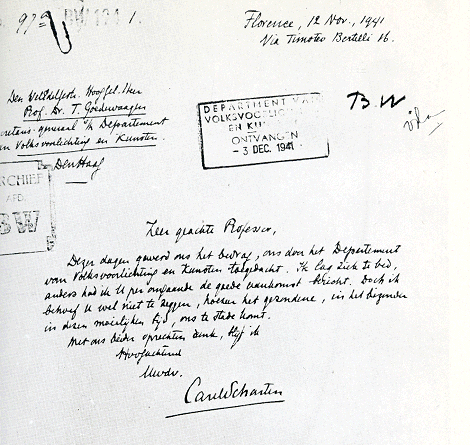 979
BW 194 1.
Florence, 12 Nov., 1941
Via Timoteo Bertelli 16.
Den WelEdelGestr. Hooggel. Heer
Prof. Dr. T. Goedewaagen
Secretaris-generaal v/h Departement
van Volksvoorlichting en Kunsten.
Den Haag
DEPARTMENT VAN
VOLKSVOORLICHTING
EN KUNSTEN
ONTVANGEN
- 3 DEC. 1941
B.W
ARCHIEF
AFD.
BW
Zeer geachte Professor,
Dezer dagen gewerd ons het bedrag, ons door het Departement
van Volksvoorlichting en Kunsten toegedacht. Ik lag ziek te bed,
anders had ik U per omgaande de goede aankomst bericht. Doch ik
behoef U wel niet te zeggen, hoezeer het gezondene, in het bijzonder
in dezen moeilijken tijd, ons te stade komt.
Met ons beider oprechten dank, blijf ik
Hoogachtend
Uwdv.
Carel Scharten